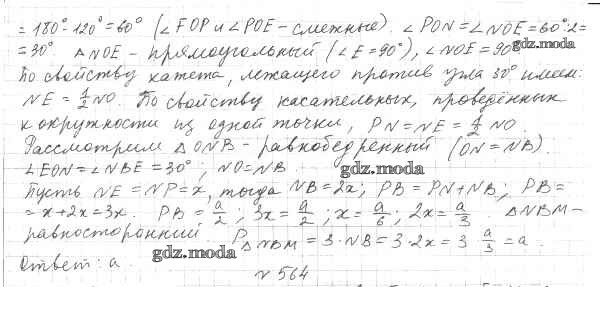 = 180° - 120° = 60° (∠FOP и ∠POE - смежные). ∠PON = ∠NOE = 60°:2 =
= 30°. △NOE - прямоугольный (∠E = 90°), ∠NOE = 90°
gdz.moda
По свойству катета, лежащего против угла 30° имеем:
NE = 1/2 NO. По свойству касательных, проведённых
к окружности из одной точки, PN = NE = 1/2 NO.
Рассмотрим △ONB - равнобедренный (ON = NB).
∠EON = ∠NBE = 30°; NO = NB.
gdz.moda
Пусть NE = NP = x, тогда NB = 2x; PB = PN + NB; PB =
= x + 2x = 3x. PB = a/2; 3x = a/2; x = a/6; 2x = a/3. △NBM -
равносторонний. P△NBM = 3·NB = 3·2x = 3 a/3 = a.
gdz.moda
Ответ: a.
N 564